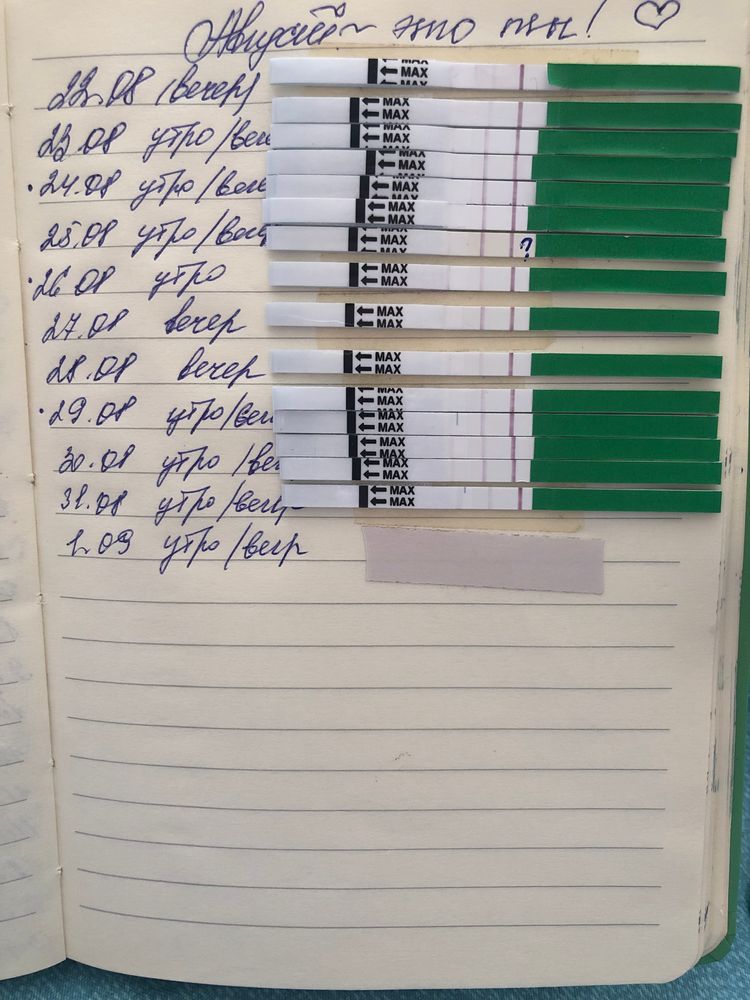 Август это ты! ♡
22.08 (вечер)
MAX
MAX
MAX
23.08 утро/веч
MAX
MAX
MAX
MAX
· 24.08 утро/веч
MAX
MAX
MAX
MAX
25.08 утро/веч
MAX
MAX
MAX
MAX
?
· 26.08 утро
MAX
MAX
27.08 вечер
MAX
MAX
28.08 вечер
MAX
MAX
· 29.08 утро/веч
MAX
MAX
MAX
MAX
30.08 утро/веч
MAX
MAX
MAX
MAX
31.08 утро/вечер
MAX
MAX
1.09 утро/вечр